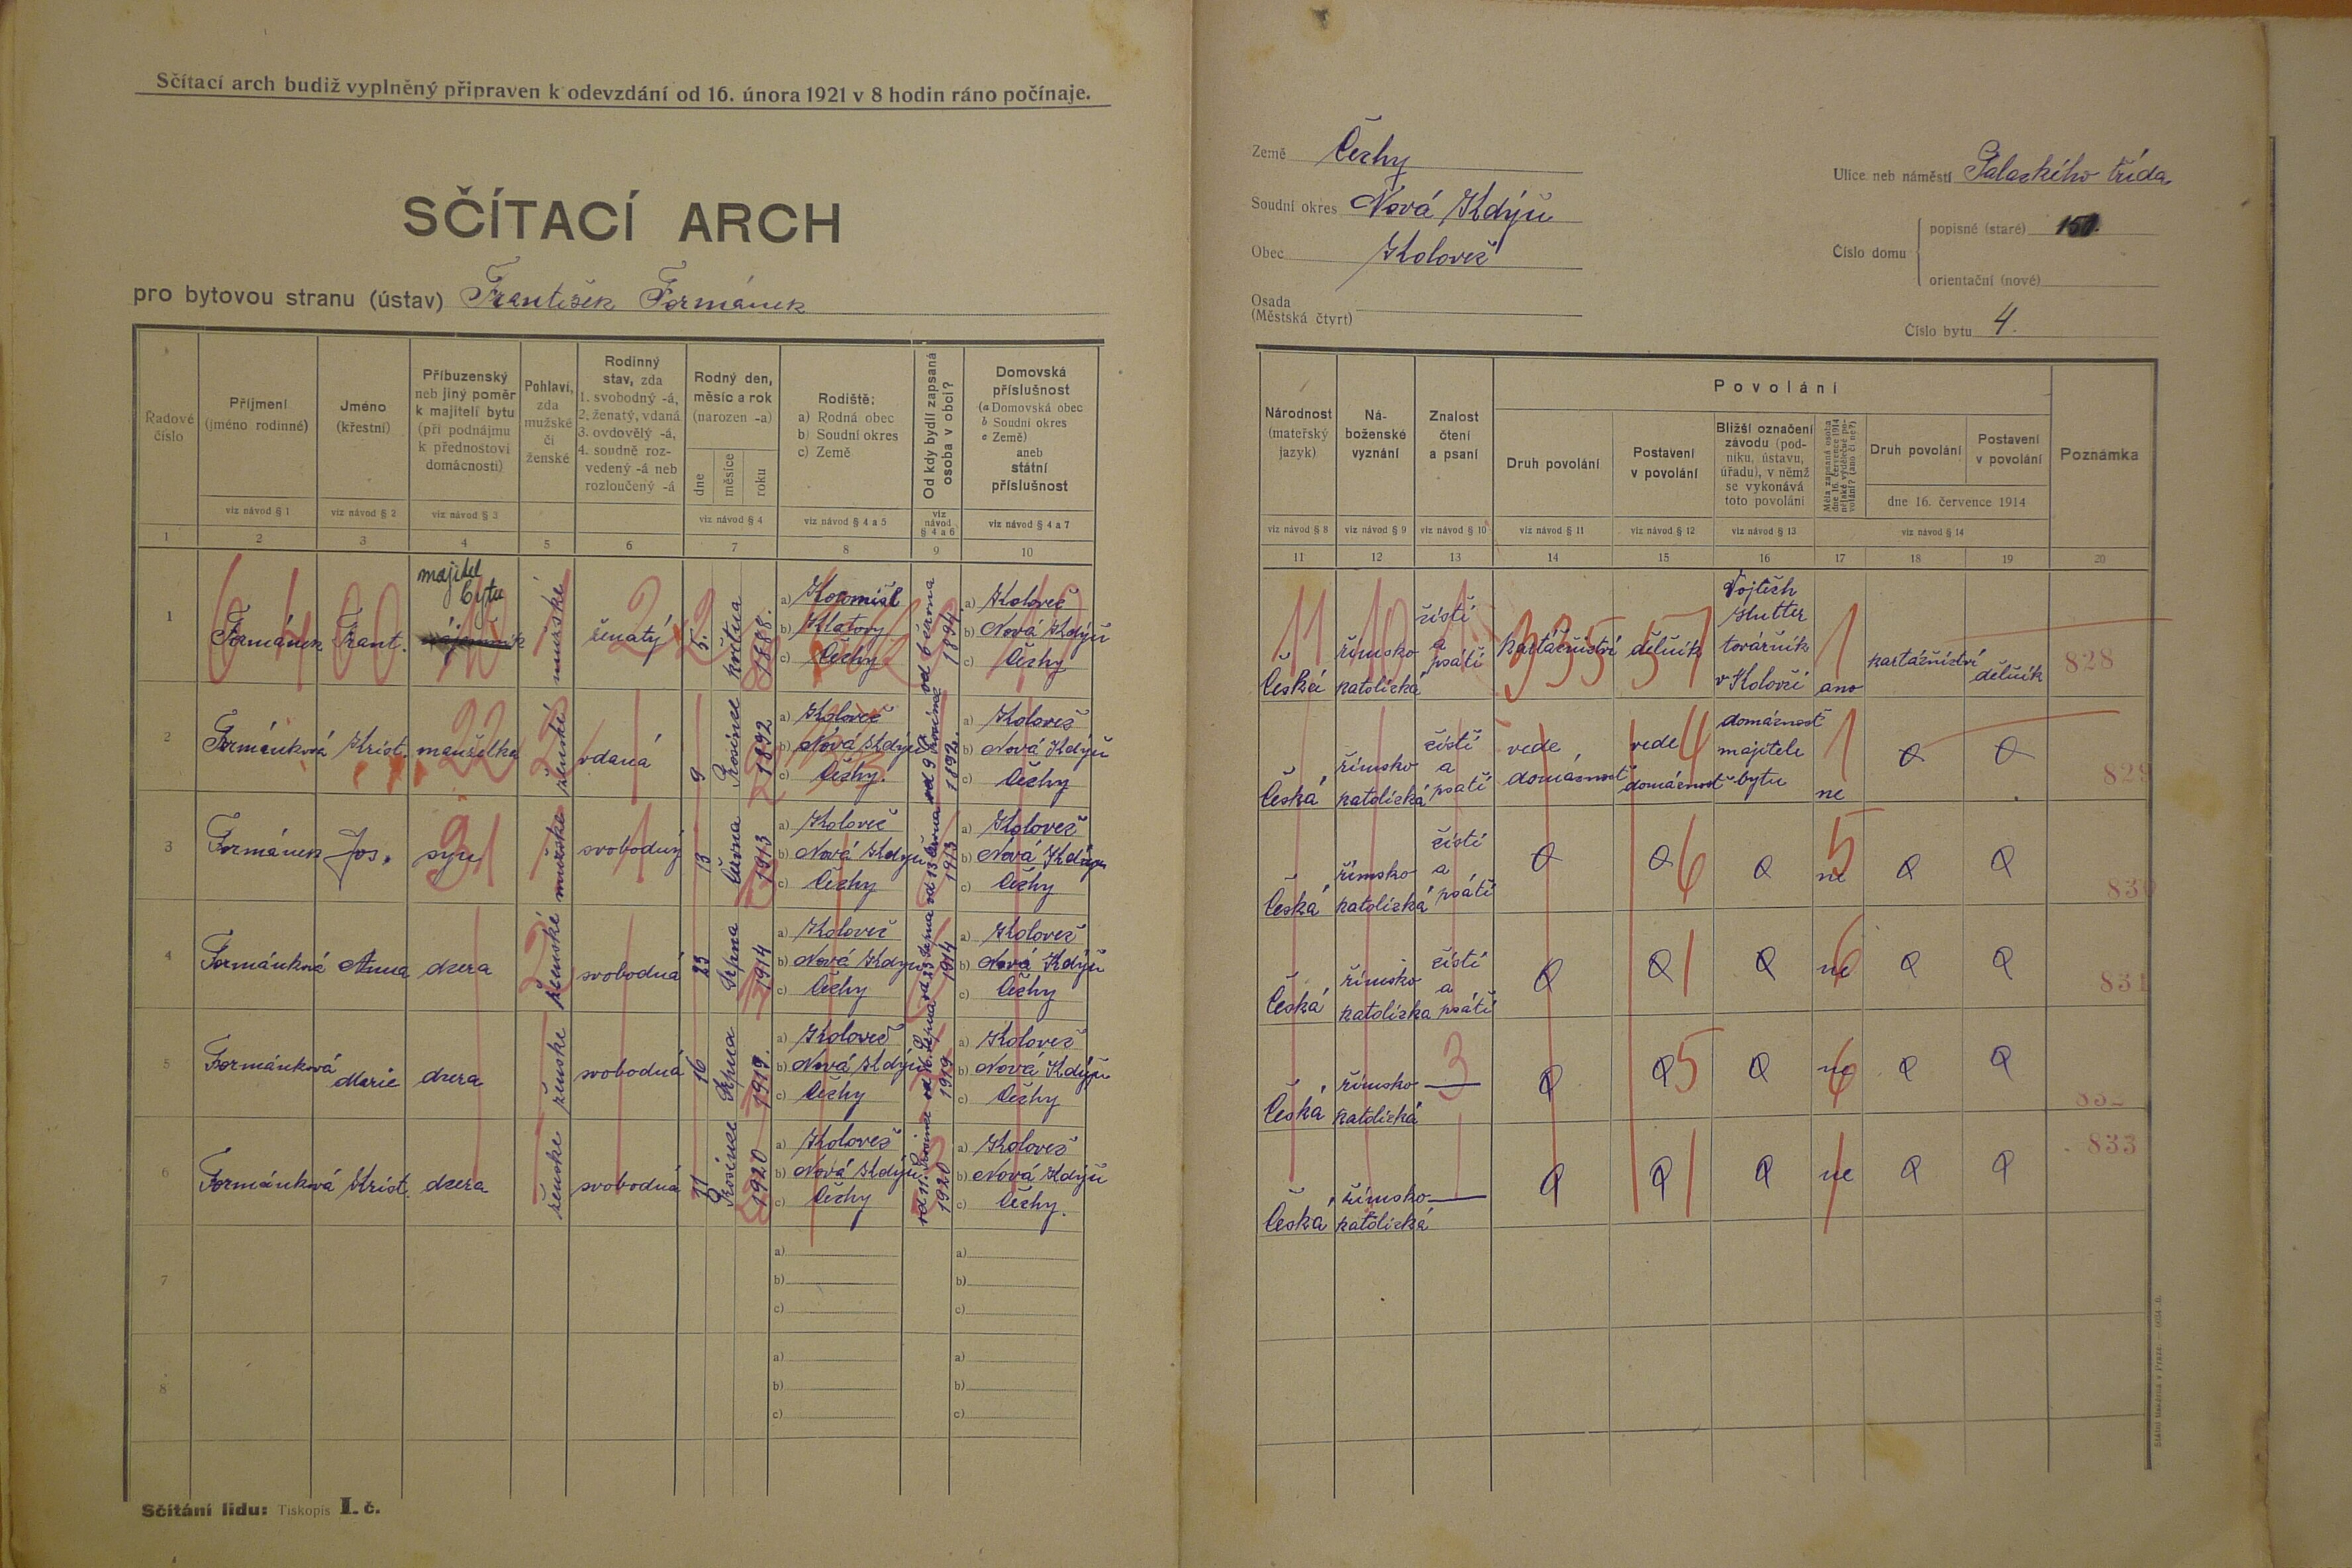 Sčítací arch budiž vyplněný připraven k odevzdání od 16. února 1921 v 8 hodin ráno počínaje.
SČÍTACÍ ARCH
pro bytovou stranu (ústav) František Formánek
Řadové číslo
Příjmení (jméno rodinné)
Jméno (křestní)
Příbuzenský neb jiný poměr k majiteli bytu (při podnájmu k přednostovi domácnosti)
Pohlaví, zda mužské či ženské
Rodinný stav, zda 1. svobodný -á, 2. ženatý, vdaná 3. ovdovělý -á, 4. soudně rozvedený -á neb rozloučený -á
Rodný den, měsíc a rok (narozen -a)
dne měsíce roku
Rodiště: a) Rodná obec b) Soudní okres c) Země
Od kdy bydlí zapsaná osoba v obci?
Domovská příslušnost (a Domovská obec b Soudní okres c Země) aneb státní příslušnost
viz návod § 1 viz návod § 2 viz návod § 3 viz návod § 4 viz návod § 4 a 5 viz návod § 4 a 6 viz návod § 4 a 7
1 2 3 4 5 6 7 8 9 10
1 Formánek Frant. majitel bytu mužské ženatý 5. května 1888. a) b) Klatovy c) Čechy 1894. a) Koloveč b) Nová Kdýň c) Čechy
2 Formánková Krist. manželka ženské vdaná 9 Prosince 1892 a) Koloveč b) Nová Kdýň c) Čechy. od 9 Prosince 1892. a) Koloveč b) Nová Kdýň c) Čechy
3 Formánek Jos. syn mužské svobodný 13 Června 1913 a) Koloveč b) Nová Kdýň c) Čechy od 13 Června 1913 a) Koloveč b) Nová Kdýň c) Čechy
4 Formánková Anna dcera ženské svobodná 23 Srpna 1914 a) Koloveč b) Nová Kdýň c) Čechy od 23 Srpna 1914 a) Koloveč b) Nová Kdýň c) Čechy
5 Formánková Marie dcera ženské svobodná 16 Srpna 1919. a) Koloveč b) Nová Kdýň c) Čechy od 16. Srpna 1919 a) Koloveč b) Nová Kdýň c) Čechy
6 Formánková Krist. dcera ženské svobodná 11 Prosince 1920 a) Koloveč b) Nová Kdýň c) Čechy od 11. Prosince 1920 a) Koloveč b) Nová Kdýň c) Čechy.
7 a) b) c) a) b) c)
8 a) b) c) a) b) c)
Sčítání lidu: Tiskopis I. č.
Země Čechy
Soudní okres Nová Kdýň
Obec Koloveč
Osada (Městská čtvrt)
Ulice neb náměstí Palackého třída
Číslo domu popisné (staré) 150.
orientační (nové)
Číslo bytu 4.
Národnost (mateřský jazyk)
Náboženské vyznání
Znalost čtení a psaní
Povolání
Druh povolání
Postavení v povolání
Bližší označení závodu (podniku, ústavu, úřadu), v němž se vykonává toto povolání
Měla zapsaná osoba dne 16. července 1914 nějaké výdělečné povolání? (ano či ne?)
Druh povolání
Postavení v povolání
dne 16. července 1914
Poznámka
viz návod § 8 viz návod § 9 viz návod § 10 viz návod § 11 viz návod § 12 viz návod § 13 viz návod § 14
11 12 13 14 15 16 17 18 19 20
Česká římsko katolická čísti a psáti kartáčnictví dělník Vojtěch Hutter továrník v Kolovči ano kartáčnictví dělník 828
Česká římsko katolická čísti a psáti vede domácnost vede domácnost domácnost majitele bytu ne 829
Česká římsko katolická čísti a psáti ne 830
Česká římsko katolická čísti a psáti ne 831
Česká římsko katolická — ne 832
Česká římsko katolická — ne 833